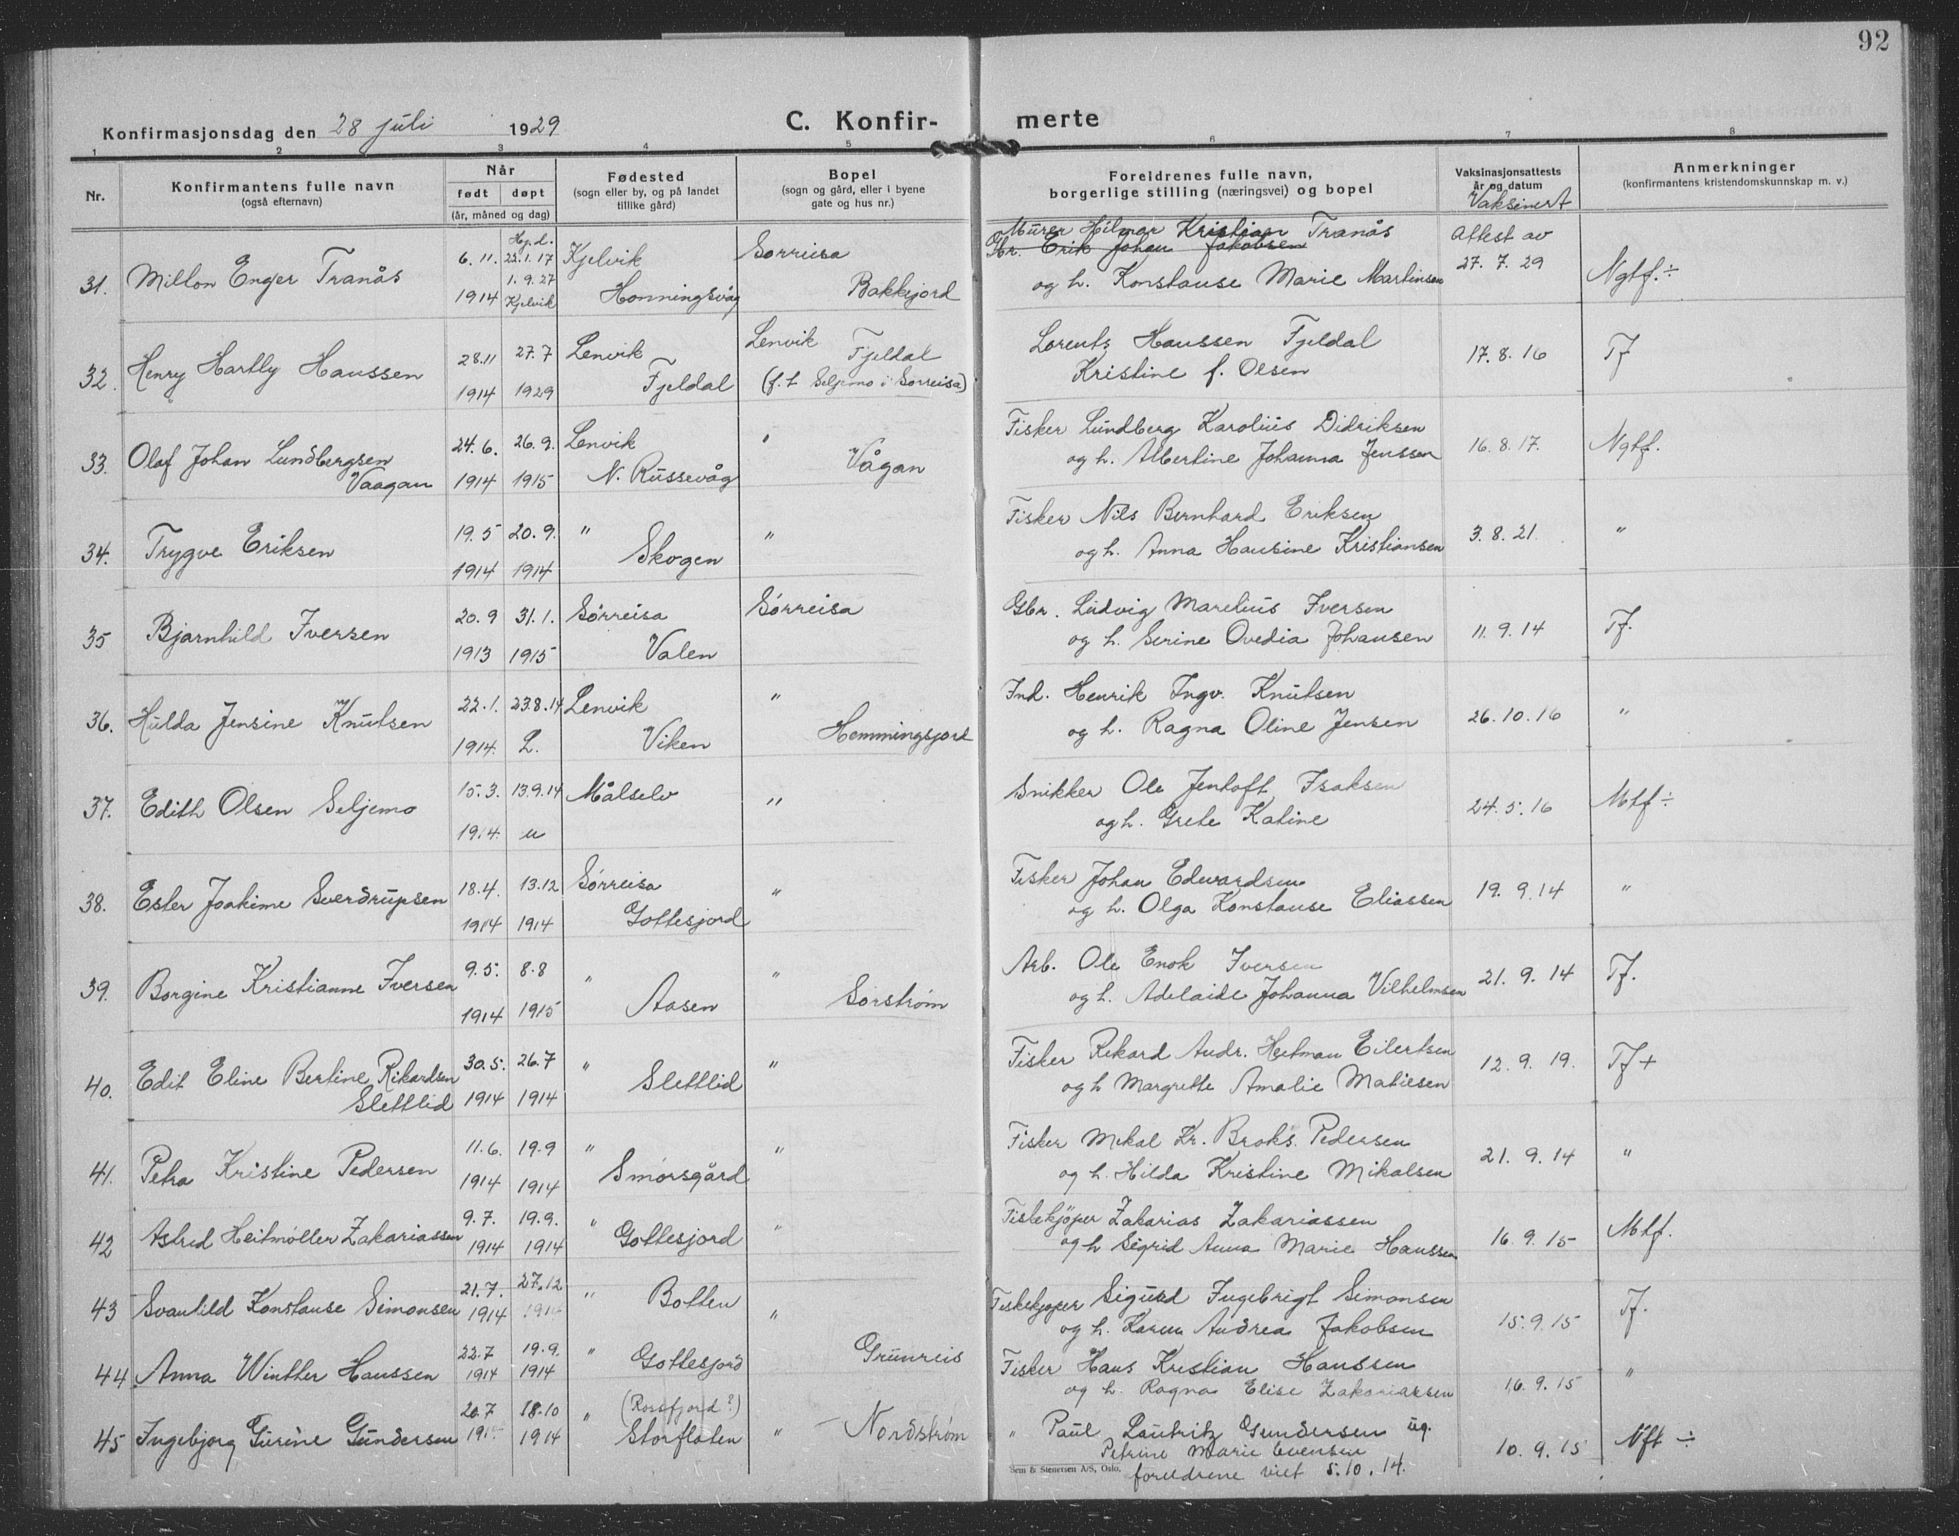 92
Konfirmasjonsdag den 28 juli 1929
C. Konfir- merte
1 2 3 4 5 6 7 8
Nr.
Konfirmantens fulle navn
(også efternavn)
Når
født døpt
(år, måned og dag)
Fødested
(sogn eller by, og på landet
tillike gård)
Bopel
(sogn og gård, eller i byene
gate og hus nr.)
Foreldrenes fulle navn,
borgerlige stilling (næringsvei) og bopel
Vaksinasjonsattests
år og datum
Vaksinert
Anmerkninger
(konfirmantens kristendomskunnskap m. v.)
Hj.d. Murer Hilmar Kristian Tranås Attest av
6.11. 22.1.17 Kjelvik Sørreisa Gbr. Erik Johan Jakobsen 27.7.29
31. Milton Enger Tranås 1.9.27 Ngtf. ÷
1914 Kjelvik Honningsvåg Bakkejord og h. Konstanse Marie Martinsen
28.11 27.7 Lenvik Lenvik Fjeldal Lorentz Hanssen Fjeldal 17.8.16 Tf
32. Henry Hartly Hanssen
1914 1929 Fjeldal (f. t. Seljemo i Sørreisa) Kristine f. Olsen
24.6. 26.9. Lenvik " Fisker Lundberg Karolius Didriksen 16.8.17. Ngtf.
33. Olaf Johan Lundbergsen
Vaagan 1914 1915 N. Russevåg Vågan og h. Albertine Johanna Jenssen
19.5 20.9. " " Fisker Nils Bernhard Eriksen 3.8.21. "
34. Trygve Eriksen
1914 1914 Skogen og h. Anna Hansine Kristiansen
20.9 31.1. Sørreisa Sørreisa Gbr. Ludvig Marelius Iversen 11.9.14 Tf.
35 Bjarnhild Iversen
1913 1915 Valen og h. Serine Ovedia Johansen
22.1. 23.8.14 Lenvik " Ind. Henrik Ingv. Knutsen 26.10.16 "
36. Hulda Jensine Knutsen
1914. L. Viken Hemmingsjord og h. Ragna Oline Jensen
15.3. 13.9.14 Målselv " Snikker Ole Jentoft Isaksen 24.5.16 Mtf ÷
37. Edith Olsen Seljemo
1914. u og h. Grete Katine
18.4. 13.12 Sørreisa " Fisker Johan Edvardsen 19.9.14 "
38. Ester Joakime Sverdrupsen
1914 1914 Gottesjord og h. Olga Konstanse Eliassen
9.5. 8.8 " " Arb. Ole Enok Iversen 21.9.14 Tf.
39. Borgine Kristianne Iversen
1914 1915 Aasen Sørstrøm og h. Adelaide Johanna Vilhelmsen
30.5. 26.7 " " Fisker Rikard Andr. Heitman Eilertsen 12.9.19. Tf +
40. Edit Eline Bertine Rikardsen
Slettlid 1914 1914 Slettlid og h Margrethe Amalie Matiesen
11.6. 19.9 " " Fisker Mikal Kr. Broks. Pedersen 21.9.14 "
41. Petra Kristine Pedersen
1914 1914 Smørsgård og h. Hilda Kristine Mikalsen
9.7. 19.9. " Gottesjord " Fiskekjøper Zakarias Zakariassen 16.9.15 Mtf.
42 Astrid Heitmøller Zakariassen
1914 1914 og h Sigrid Anna Marie Hanssen
21.7. 27.12 " Botten " Fiskekjøper Sigurd Ingebrigt Simonsen 15.9.15 Tf.
43 Svanhild Konstanse Simonsen
1914 1914 og h. Karen Andrea Jakobsen
22.7 19.9. " Gottesjord Grunreis Fisker Hans Kristian Hanssen 16.9.15 "
44 Anna Winther Hanssen
1914 1914 og h. Ragna Elise Zakariassen
20.7 18.10 " (Rossfjord?) " Nordstrøm " Paul Lauritz Gundersen ug.
45 Ingebjorg Gurine Gundersen
1914 Storfloten Petrine Marie Evensen 10.9.15 Nft ÷
foreldrene viet 5.10.14.
Sem & Stenersen A/S, Oslo.